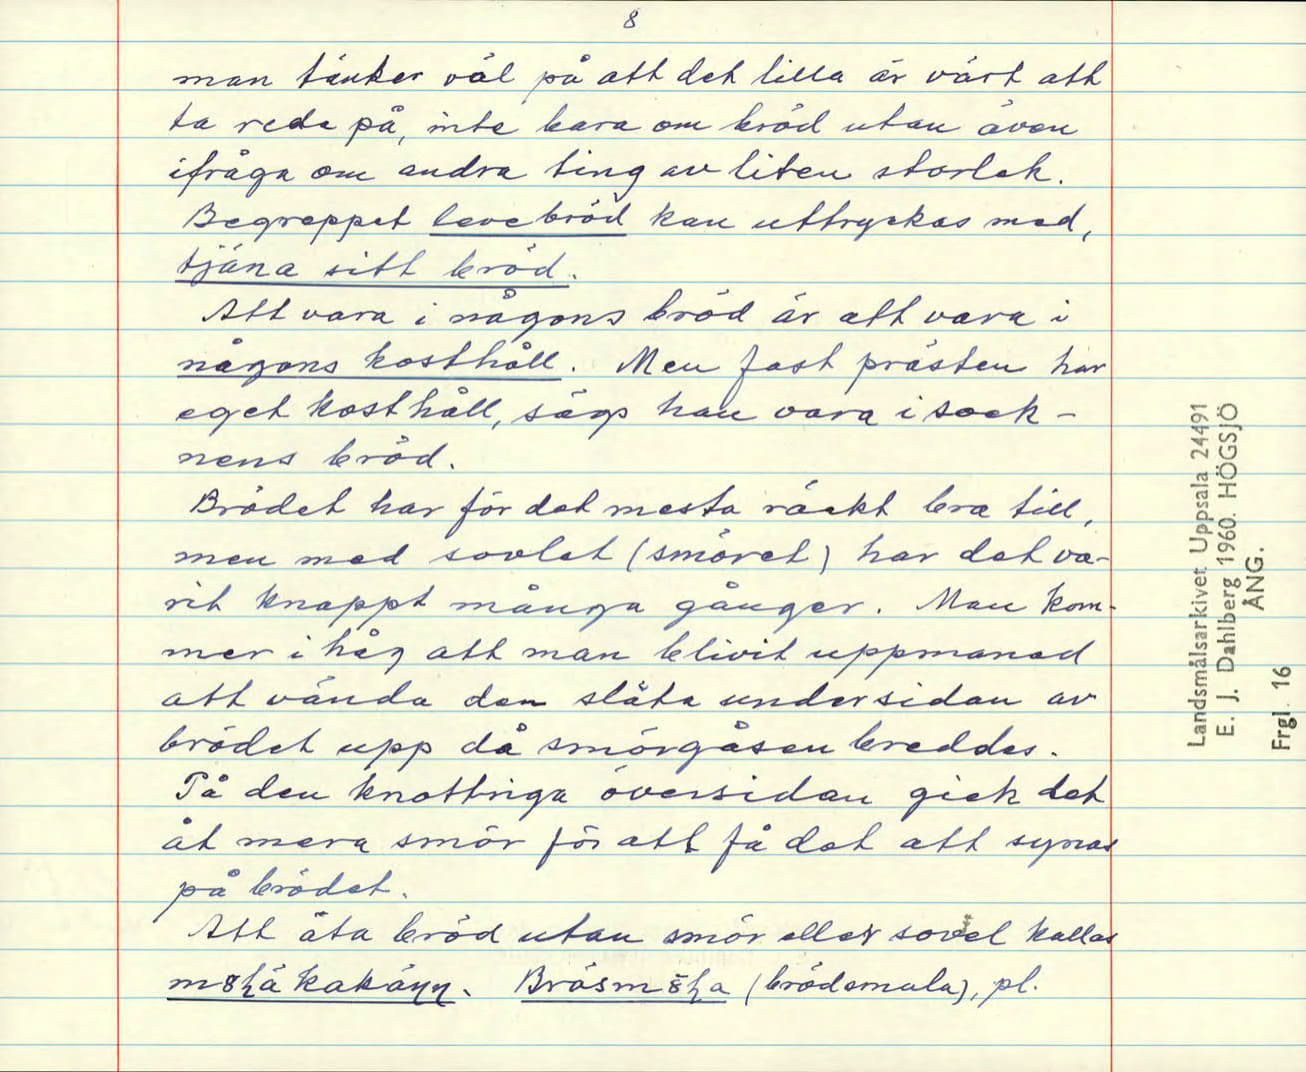 8
man tänker väl på att det lilla är värt att
ta reda på, inte bara om bröd utan även
ifråga om andra ting av liten storlek.
Begreppet levebröd kan uttryckas med,
tjäna sitt bröd.
Att vara i någons bröd är att vara i
någons kosthåll. Men fast prästen har
eget kosthåll, sägs han vara i sock-
nens bröd.
Brödet har för det mesta räckt bra till,
men med sovlet (smöret) har det va-
rit knappt många gånger. Man kom-
mer i håg att man blivit uppmanad
att vända den släta undersidan av
brödet upp då smörgåsen breddes.
På den knottriga översidan gick det
åt mera smör för att få det att synas
på brödet.
Att äta bröd utan smör eller sovel kallas
kakäņņ. (brödsmula), pl.
Landsmålsarkivet Uppsala 24491
E. J. Dahlberg 1960. HÖGSJÖ
ÅNG.
Frgl. 16